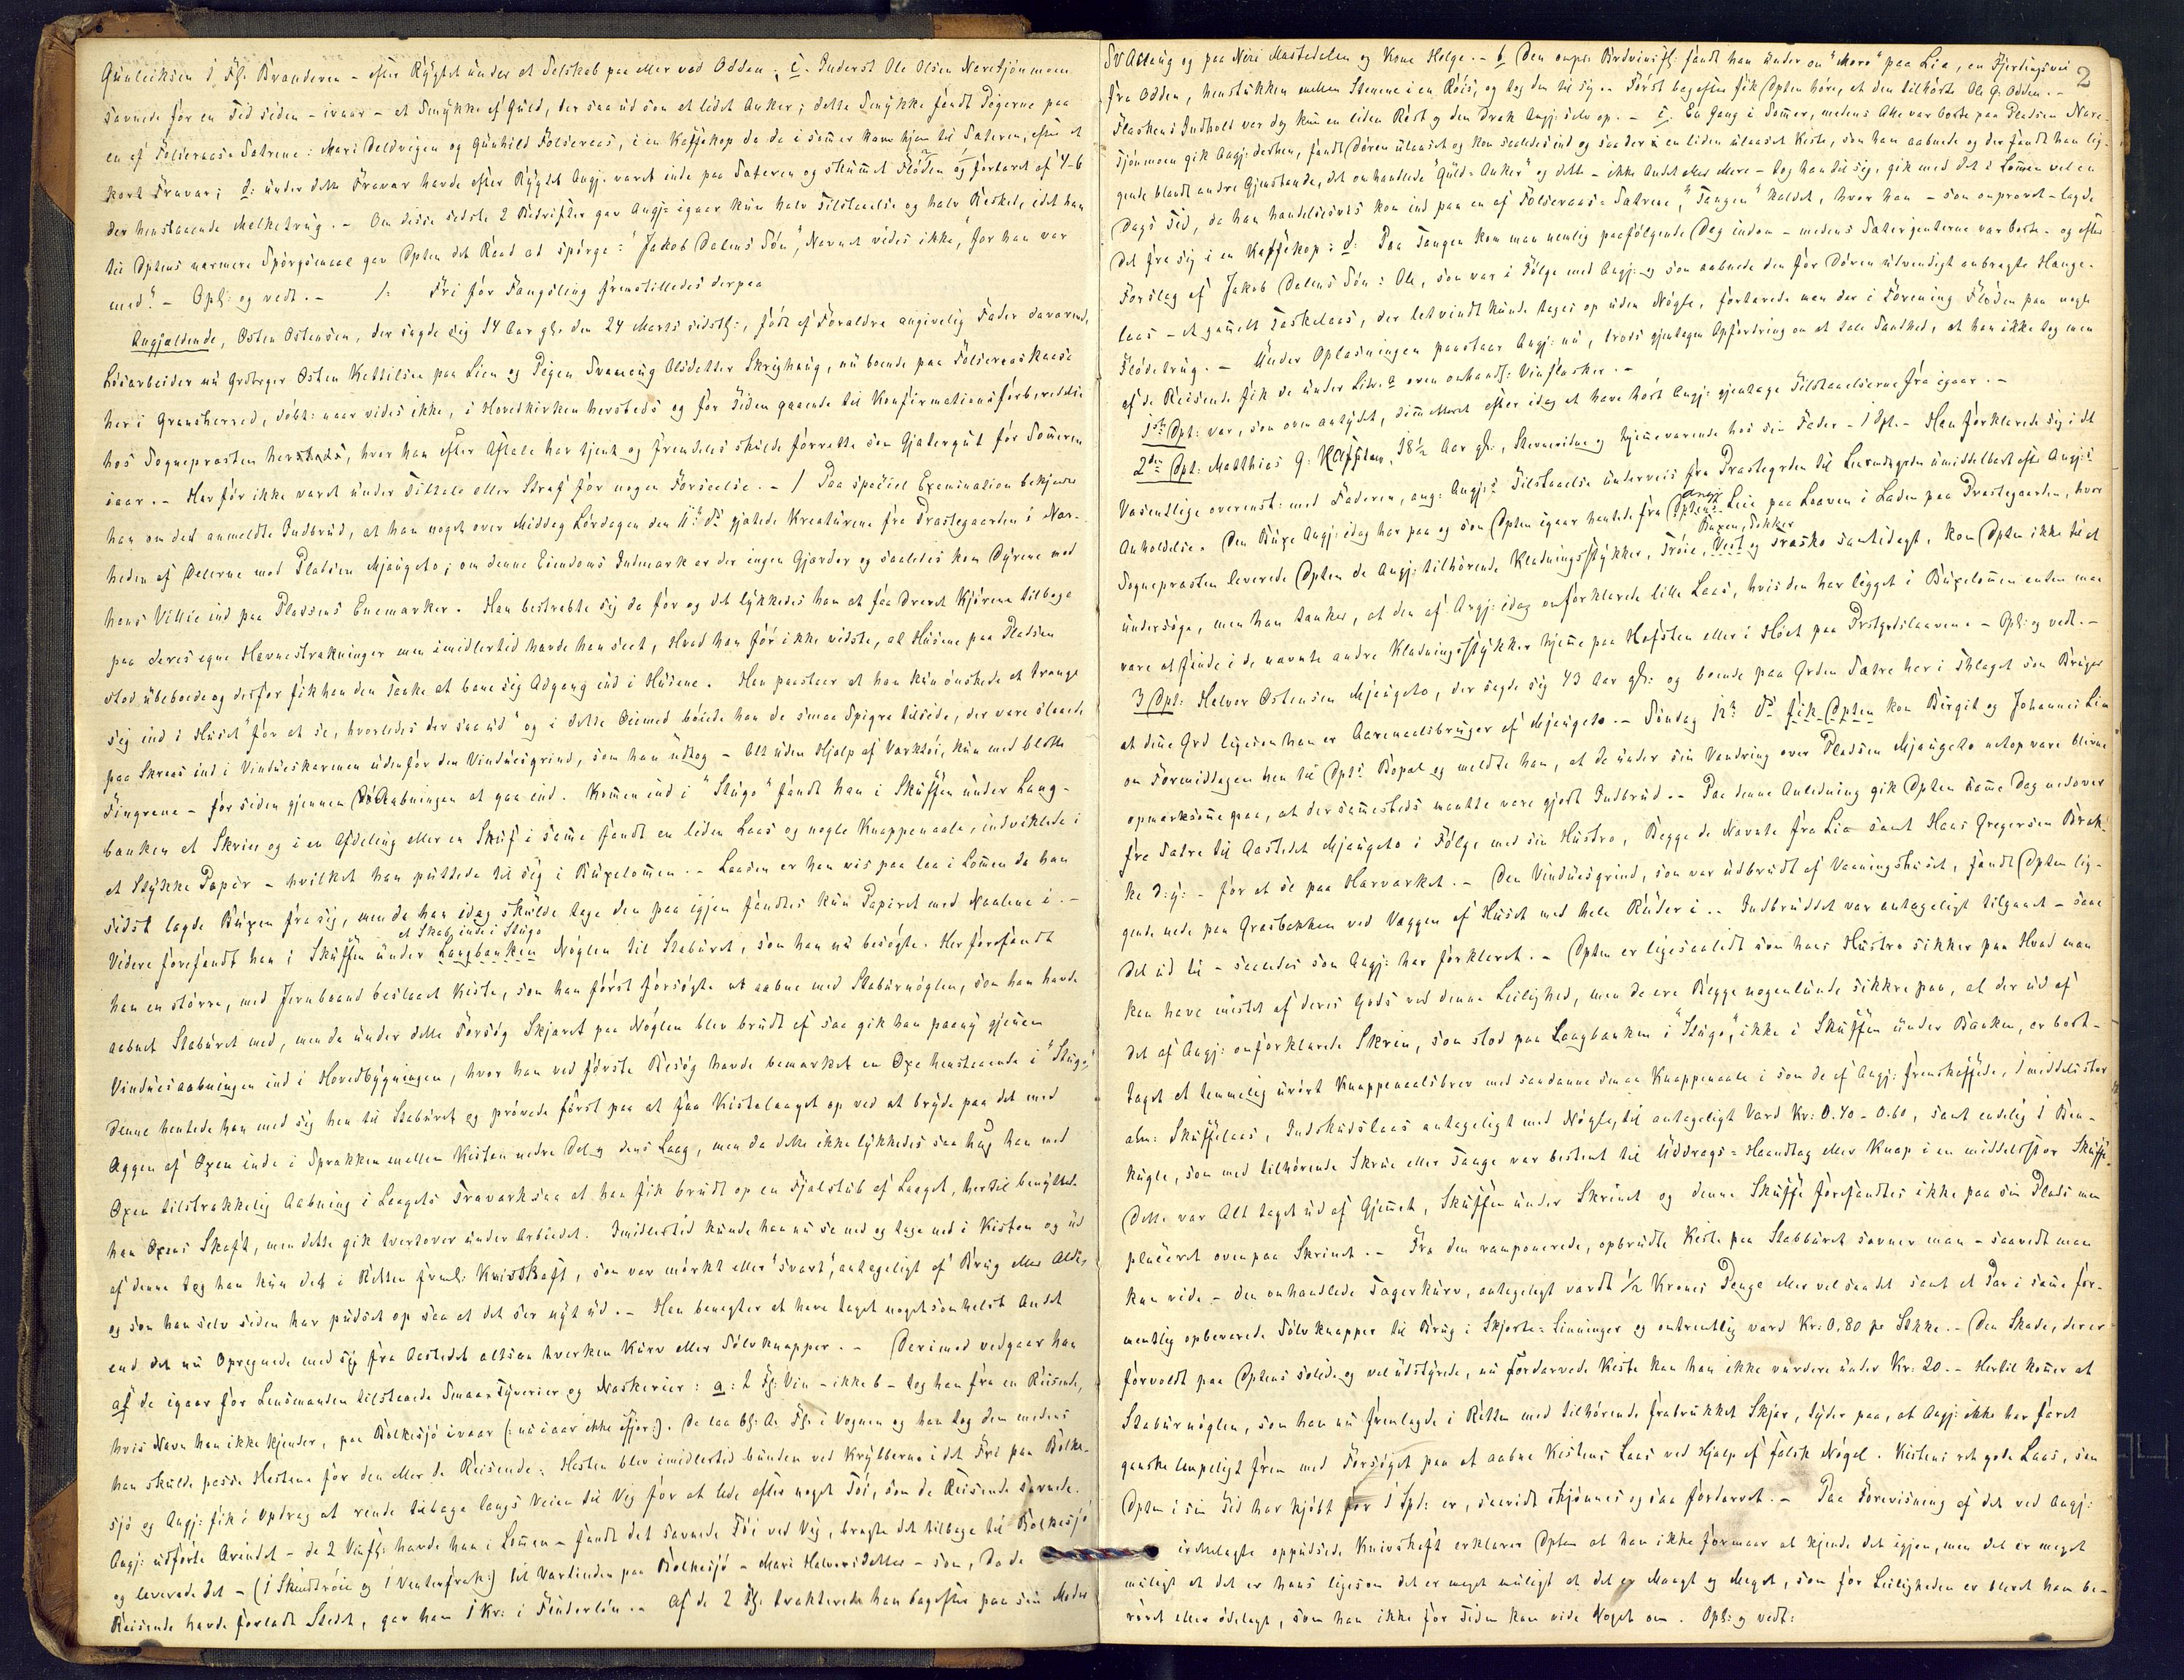 Gunleiksen 1 Fl. Brændevin – efter Rygtet under et Selskab paa eller ved Odden; c. Inderst Ole Olsen Næresjönmoen
savnede for en Tid siden – ivaar – et Smykke af Guld, der saa ud som et lidet Anker; dette Smykke fandt Pigerne paa
en af Folseraas Sætrene: Mari Deldvigen og Gunhild Folseraas, i en Kaffekop da de i Sommer kom hjem til Sæteren, efter et
kort Fravær; d: under dette Fravær havde efter Rygtet Angj. været inde paa Sæteren og skummet Flöden og fortæret af 4-6
der henstaaende Melketrug. – Om disse sidste 2 Bedrifter gav Angj. igaar kun halv Tilstaaelse og halv Beskeed, idet han
til Dptens nærmere Spörgsmaal gav Dpten det Raad at spörge: "Jakob Dalens Sön", Navnet vides ikke, "for han var
med". – Opl: og vedt. – /: Fri for Fængsling fremstilledes derpaa
Angjældende, Østen Østensen, der sagde sig 14 Aar gl. den 24 Marts sidstl:, födt af Forældre angivelig Fader daværende
Lösarbeider nu Grdbrger Østen Kettilsen paa Lien og Pigen Svanaug Olsdatter Skryhaug, nu boende paa Folseraaskaasa
her i Gransherred, döbt: naar vides ikke, i Hovedkirken hersteds og for Tiden gaaende til Konfirmationsforberedelse
hos Sognepræsten hersteds, hvor han efter Aftale har tjent og fremdeles skulde forrette som Gjætergut for Sommeren
iaar. – Har för ikke været under Tiltale eller Straf for nogen Forseelse. – / Paa speciel Examination bekjender
han om det anmeldte Indbrud, at han noget over Middag Lördagen den 11te ds gjætede Kreaturene fra Præstegaarden i Nær-
heden af Delerne mod Pladsen Mjaugeto; om denne Eiendoms Indmark er der ingen Gjærder og saaledes kom Dyrene mod
hans Villie ind paa Pladsens Enemærker. Han bestræbte sig da for og det lykkedes ham at faa drevet Kjörene tilbage
paa deres egne Havnestrækninger men imidlertid havde han seet, Hvad han för ikke vidste, at Husene paa Pladsen
stod ubeboede og derfor fik han den Tanke at bane sig Adgang ind i Husene. Han paastaar at han kun önskede at trænge
sig ind i Huset "for at se, hvorledes der saa ud" og i dette Öiemed böiede han de smaa Spigre tilside, der vare slaaede
paa Skraas ind i Vindueskarmen udenfor den Vinduesgrind, som han udtog – Alt uden Hjælp af Værktöi, kun med blotte
Fingrene – for siden gjennem Aabningen at gaa ind. Kommen ind i "Stugo" fandt han i Skuffen under Lang-
bænken et Skrin og i en Afdeling eller en Skuf i samme fandt en liden Laas og nogle Knappenaale, indviklede i
et Stykke Papir – hvilket han puttede til sig i Buxelommen. – Laasen er han vis paa laa i Lommen da han
sidst lagde Buxen fra sig, men da han idag skulde tage den paa igjen fandtes kun Papiret med Naalene i. –
et Skab inde i Stugo
Videre forefandt han i Skuffen under Langbænken Nöglen til Stabúret, som han nu besögte. Her forefandt
han en större, med Jernbaand beslaaet Kiste, som han först forsögte at aabne med Stabursnöglen, som han havde
aabnet Staburet med, men da under dette Forsög Skjæret paa Nöglen blev brudt af saa gik han paany gjennem
Vinduesaabningen ind i Hovedbygningen, hvor han ved förste Besög havde bemærket en Øxe henstaaende i "Stugo",
denne hentede han med sig hen til Staburet og prövede först paa at faa Kistelaaget op ved at bryde paa det med
Æggen af Øxen inde i Sprækken mellem Kisten nedre Del og dens Laag, men da dette ikke lykkedes saa hug han med
Øxen tilstrækkelig Aabning i Laagets Træværk saa at han fik brudt op en Fjælstub af Laaget, hertil benyttede
han Øxens Skaft, men dette gik tvertover under Arbeidet. Imidlertid kunde han nu se ned og tage ned i Kisten og ud
af denne tog han kun det i Retten freml: Knivskaft, som var mörkt eller "svart", antageligt af Brug eller Ælde,
og som han selv siden har pudset op saa at det ser nyt ud. – Han benegter at have taget nogetsomhelst Andet
end det nu Opregnede med sig fra Aastedet altsaa hverken Kurv eller Sölvknapper. – Derimod vedgaar han
af de igaar for Lensmanden tilstaaede Smaa=Tyverier og Naskerier: a: 2 Fl: Vin – ikke 6 – tog han fra en Reisende,
hvis Navn han ikke kjender, paa Bolkesjö ivaar (: nu iaar ikke ifjor:). De laa bl: A. Fl: i Vognen og han tog dem medens
han skulde passe Hestene for den eller de Reisende; Hesten blev imidlertid bunden ved Krybberne i det Fri paa Bolke-
sjö og Angj: fik i Opdrag at rende tilbage langs Veien til Vig for at lede efter noget Töi, som de Reisende savnede.
Angj: udförte Ærindet – de 2 Vinfl: havde han i Lommen – fandt det savnede Töi ved Vig, bragte det tilbage til Bolkesjö
og leverede det – (1 Skindtröie og 1 Vinterfrak:) til Værtinden paa Bolkesjö – Mari Halvorsdatter – som, da de
Reisende havde forladt Stedet, gav ham 1 Kr: i Finderlön. – Af de 2 Fl. trakterede han bagefter paa sin Moder
2
Svanaug og paa Neri Mastedalen og Kone Helge. – b Den omspr. Brdvinsfl: fandt han under en "Moro" paa Lia, en Fjerdingsvei
fra Odden, henstukken mellem Stenene i en Röis, og tog den til sig. – Först bagefter fik Dpten höre, at den tilhörte Ole G. Odden. –
Flaskens Indhold var dog kun en liden Rest og den drak Angj: selv op. – c. En Gang i Sommer, medens Alle var borte paa Pladsen Nære-
sjönmoen gik Angj: derhen, fandt Dören ulaaset og kom saaledes ind og saa der en liden ulaaset Kiste, som han aabnede og der fandt han lig-
gende blandt andre Gjenstande, det omhandlede "Guld=Anker" og dette – ikke Andet eller Mere – tog han til sig, gik med det i Lommen vel en
Dags Tid, da han hændelsesvis kom ind paa en af Folseraas=Sætrene, "Tangen" kaldet, hvor han – som omprovet – lagde
det fra sig i en Kaffekop: d: Paa Tangen kom man nemlig paafölgende Dag indom – medens Sæterjenterne var borte – og efter
Forslag af Jakob Dalens Sön: Ole, som var i Fölge med Angj: og som aabnede den for Dören udvendigt anbragte Hænge-
laas – et gammelt Taskelaas, der letvindt kunde tages op uden Nögle, fortærede man der i Forening Flöden paa nogle
Flödetrug. – Under Oplæsningen paastaar Angj: nu, trods gjentagen Opfordring om at tale Sandhed, at han ikke tog men
af de Reisende fik de under Litr. a oven omhandl: Vinflasker. –
1ste Dpt: var, som oven antydet, dimitteret efter idag at have hört Angj: gjentage Tilstaaelserne fra igaar. –
2den Dpt: Matthias G. Kaffsten, 18½ Aar gl:, Stevnevidne og hjemmeværende hos sin Fader – 1 Dpt. – Han forklarede sig i det
Væsentlige overenst: med Faderen, ang: Angj:s Tilstaaelse underveis fra Præstegrden til Lensmdsgrden umiddelbart efter Angj:s
Angj:
Anholdelse. Den Buxe Angj: idag har paa og som Dpten igaar hentede fra Dptens Leie paa Laaven i Laden paa Præstegaarden, hvor
Buxen, Sokker
Sognepræsten leverede Dpten de Angj: tilhörende Klædningsstykker, Tröie, Vest og Træsko samtidigt, kom Dpten ikke til at
undersöge, men han tænker, at den af Angj: idag omforklarede lille Laas, hvis den har ligget i Buxelommen enten maa
være at finde i de nævnte andre Klædningsstykker hjemme paa Hafsten eller i Höet paa Prstgrdslaaven. – Opl: og vedt. –
3 Dpt: Halvor Østensen Mjaugeto, der sagde sig 43 Aar gl: og boende paa Grden Sætre her i Thlaget som Bruger
af denne Grd ligesom han er Aaremaalsbruger af Mjaugeto. – Söndag 12te ds fik Dpten kom Birgit og Johannes Lia
om Formiddagen hen til Dpts Bopæl og meldte ham, at de under sin Vandring over Pladsen Mjaugeto netop vare blevne
opmærksomme paa, at der sammesteds maatte være gjort Indbrud. – Paa denne Anledning gik Dpten samme Dag nedover
fra Sætre til Aastedet Mjaugeto i Fölge med sin Hustro, Begge de Nævnte fra Lia samt Hans Gregersen Bræk-
ke d:y: – for at se paa Hærværket. – Den Vinduesgrind, som var udbrudt af Vaaningshuset, fandt Dpten lig-
gende nede paa Græsbakken ved Væggen af Huset med hele Ruder i. – Indbruddet var antageligt tilgaaet – saae
det ud til – saaledes som Angj: har forklaret. – Dpten er ligesaalidt som hans Hustro sikker paa Hvad man
kan have mistet af deres Gods ved denne Leilighed, men de ere Begge nogenlunde sikkre paa, at der ud af
det af Angj: omforklarede Skrin, som stod paa Langbænken i "Stugo", ikke i Skuffen under Bænken, er bort-
taget et temmelig urört Knappenaalsbrev med saadanne smaa Knappenaale i som de af Angj: fremskaffede, 1 middelsstor
alm: Skuffelaas, Indskudslaas antageligt med Nögle, til antageligt Værd Kr: 0.40 – 0.60, samt endelig 1 Ben-
kugle, som med tilhörende Skrue eller Tange var bestemt til Uddrags=Haandtag eller Knap i en middelsstor Skuffe.
Dette var Alt taget ud af Gjemmet, Skuffen under Skrinet og denne Skuffe forefandtes ikke paa sin Plads men
placeret ovenpaa Skrinet. – Fra den ramponerede, opbrudte Kiste paa Stabburet savner man – saavidt man
kan vide – den omhandlede Tagerkurv, antageligt værdt ½ Krones Penge eller vel saa det samt et Par i samme for-
mentlig opbevarede Sölvknapper til Brug i Skjorte=Linninger og omtrentlig værd Kr: 0,80 pr Stkke. – Den Skade, der er
forvoldt paa Dptens solide og veludstyrede, nu fordærvede Kiste kan han ikke vurdere under Kr: 20. – Hertil kommer at
Stabursnöglen, som han nu fremlagde i Retten med tilhörende frabrukket Skjær, tyder paa, at Angj: ikke har faret
ganske lempeligt frem med Forsöget paa at aabne Kistens Laas ved Hjælp af falsk Nögel. Kistens ret gode Laas, som
Dpten i sin Tid har kjöbt for 1 Spd: er, saavidt skjönnes og saa fordærvet. – Paa Forevisning af det ved Angj:
irettelagte oppudsede Knivskaft erklærer Dpten at han ikke formaar at kjende det igjen, men det er meget
muligt at det er hans ligesom det er meget muligt at det er Mangt og Meget, som för Leiligheden er blevet ham be-
rövet eller ödelagt, som han ikke for Tiden kan vide Noget om. Opl: og vedt: